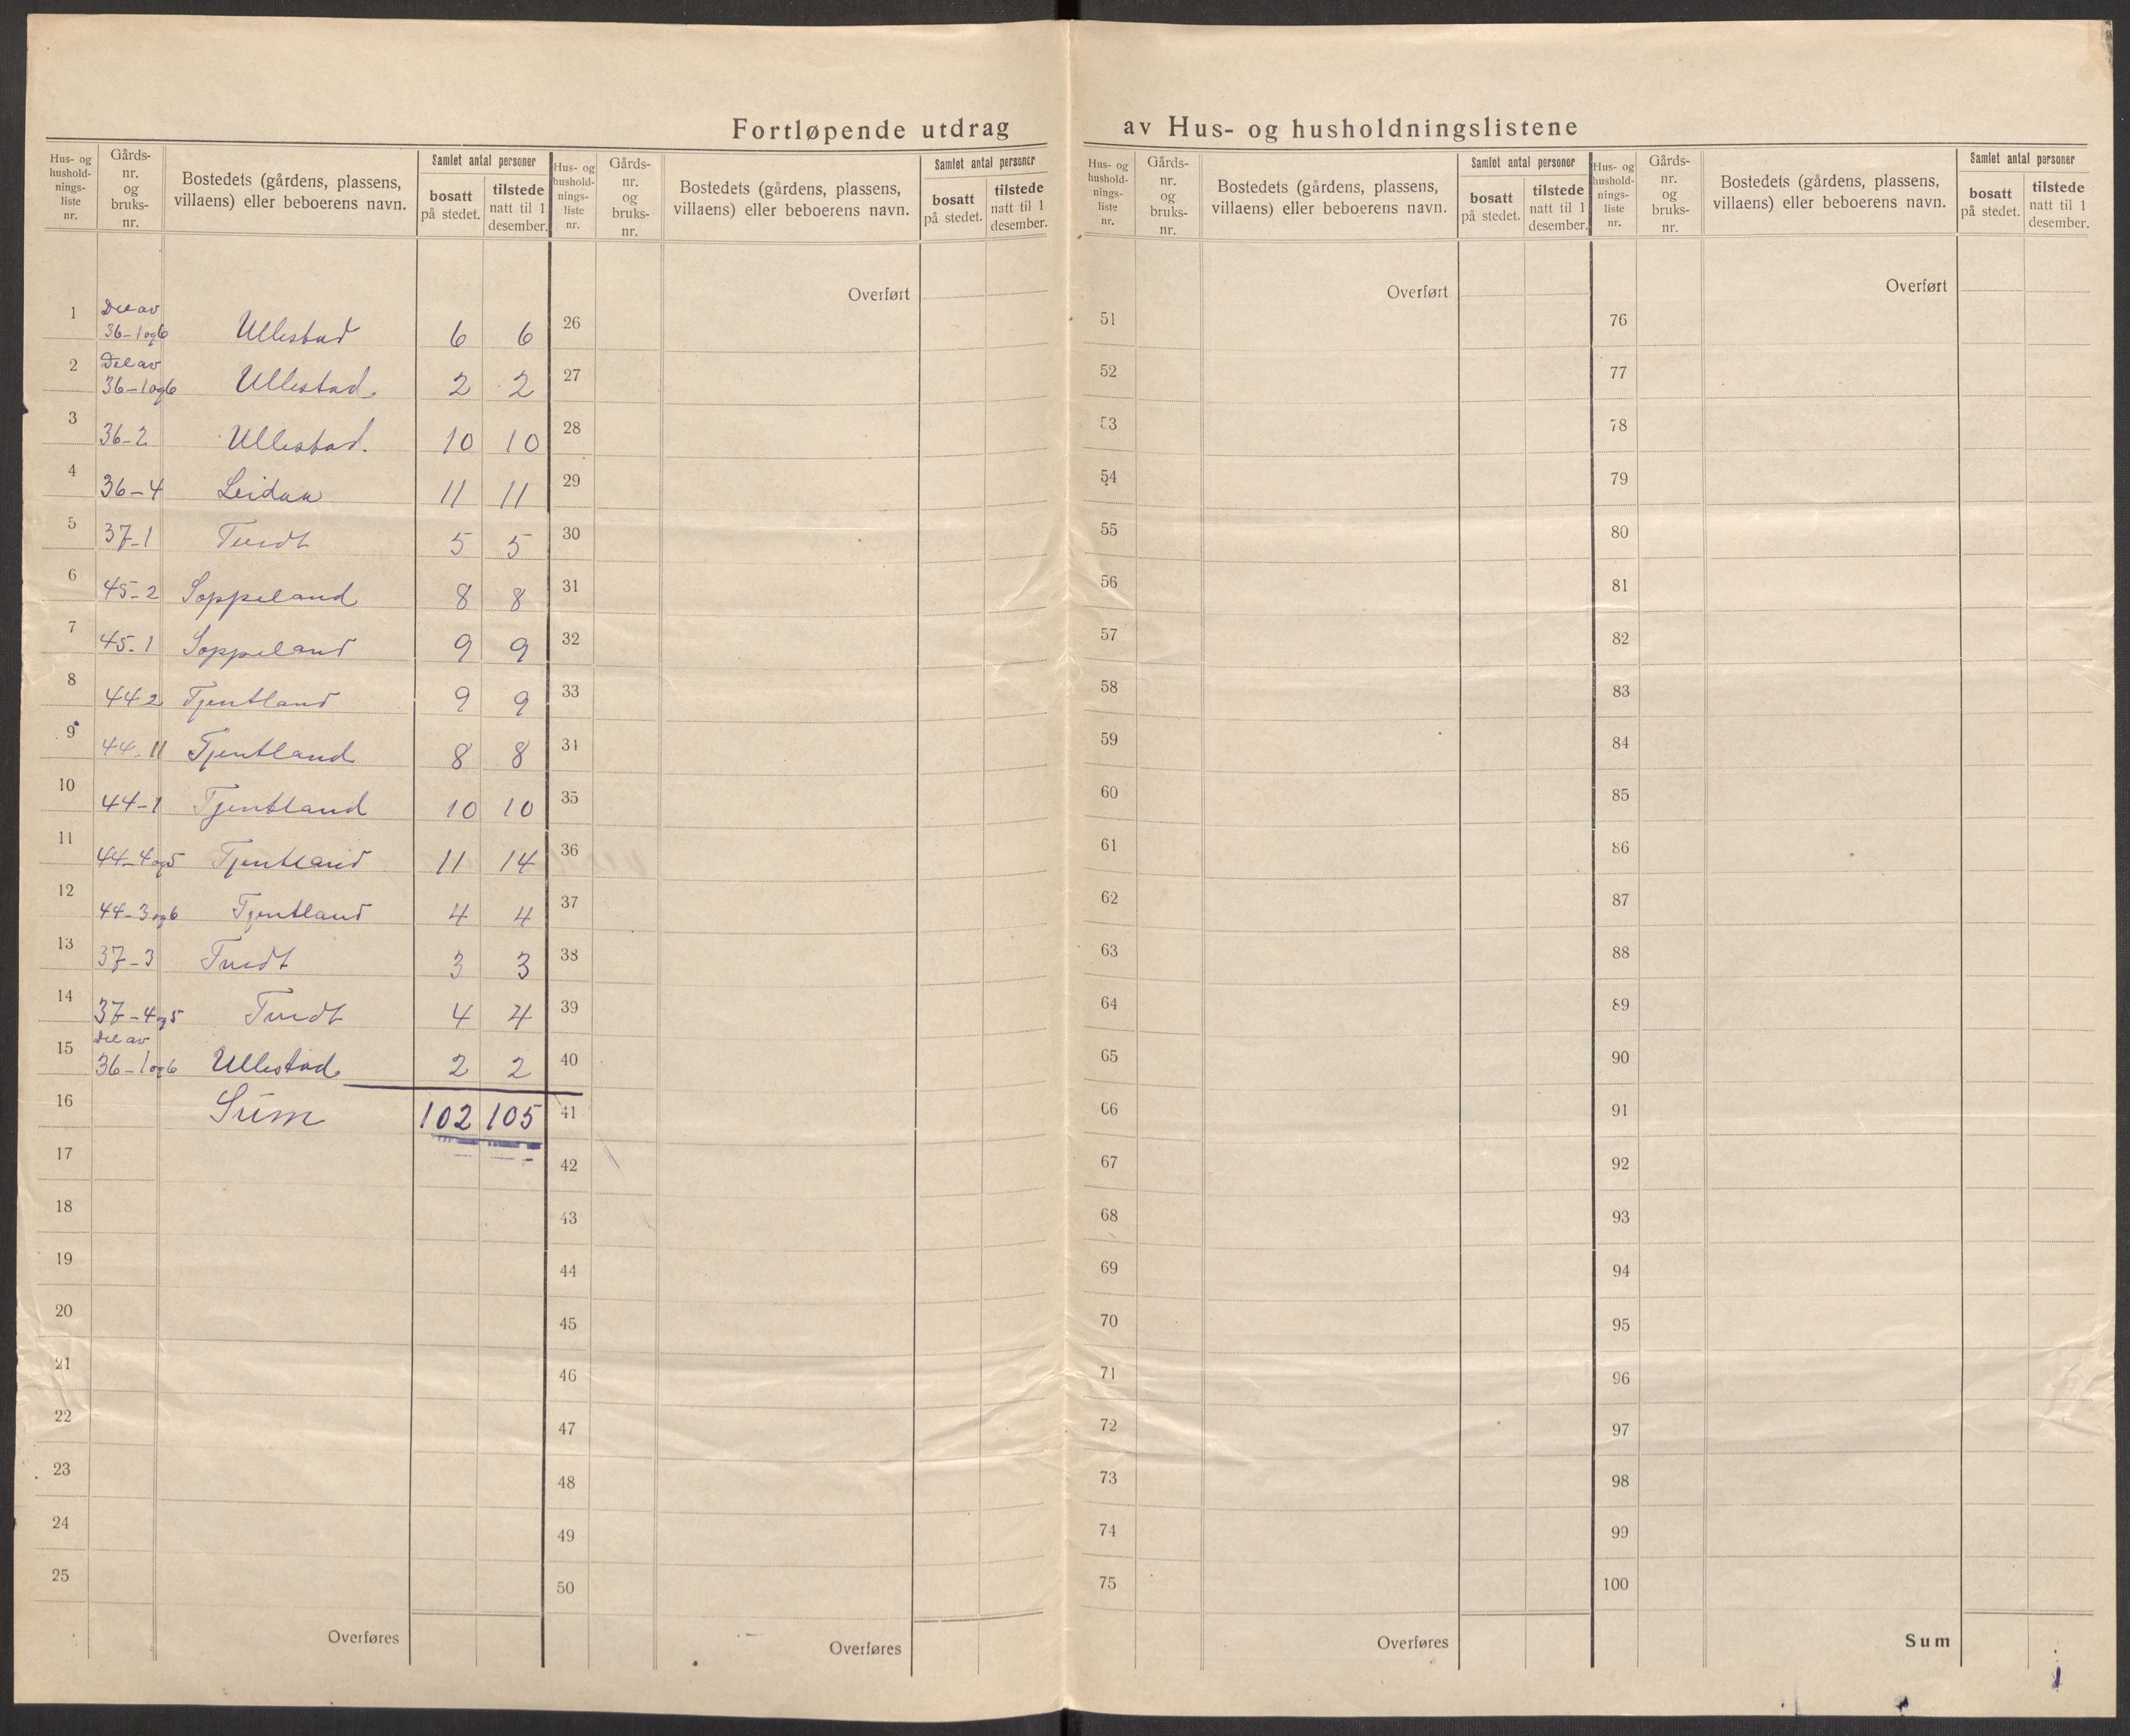 Fortløpende utdrag av Hus- og husholdningslistene
Hus- og husholdningsliste nr. Gårdsnr. og bruksnr. Bostedets (gårdens, plassens, villaens) eller beboerens navn. Samlet antal personer bosatt på stedet. tilstede natt til 1 desember.
1 Del av 36-1og6 Ullestad 6 6
2 Del av 36-1og6 Ullestad 2 2
3 36-2 Ullestad. 10 10
4 36-4 Leidaa 11 11
5 37-1 Tvedt 5 5
6 45-2 Soppeland 8 8
7 45-1 Soppeland 9 9
8 44 2 Tjentland 9 9
9 44-11 Tjentland 8 8
10 44-1 Tjentland 10 10
11 44-4og5 Tjentland 11 14
12 44-3og6 Tjentland 4 4
13 37-3 Tvedt 3 3
14 37-4og5 Tvedt 4 4
15 Del av 36-1og6 Ullestad 2 2
16 Sum 102 105
17
18
19
20
21
22
23
24
25
Overføres
Hus- og husholdningsliste nr. Gårdsnr. og bruksnr. Bostedets (gårdens, plassens, villaens) eller beboerens navn. Samlet antal personer bosatt på stedet. tilstede natt til 1 desember.
Overført
26
27
28
29
30
31
32
33
34
35
36
37
38
39
40
41
42
43
44
45
46
47
48
49
50
Overføres
Hus- og husholdningsliste nr. Gårdsnr. og bruksnr. Bostedets (gårdens, plassens, villaens) eller beboerens navn. Samlet antal personer bosatt på stedet. tilstede natt til 1 desember.
Overført
51
52
53
54
55
56
57
58
59
60
61
62
63
64
65
66
67
68
69
70
71
72
73
74
75
Overføres
Hus- og husholdningsliste nr. Gårdsnr. og bruksnr. Bostedets (gårdens, plassens, villaens) eller beboerens navn. Samlet antal personer bosatt på stedet. tilstede natt til 1 desember.
Overført
76
77
78
79
80
81
82
83
84
85
86
87
88
89
90
91
92
93
94
95
96
97
98
99
100
Sum